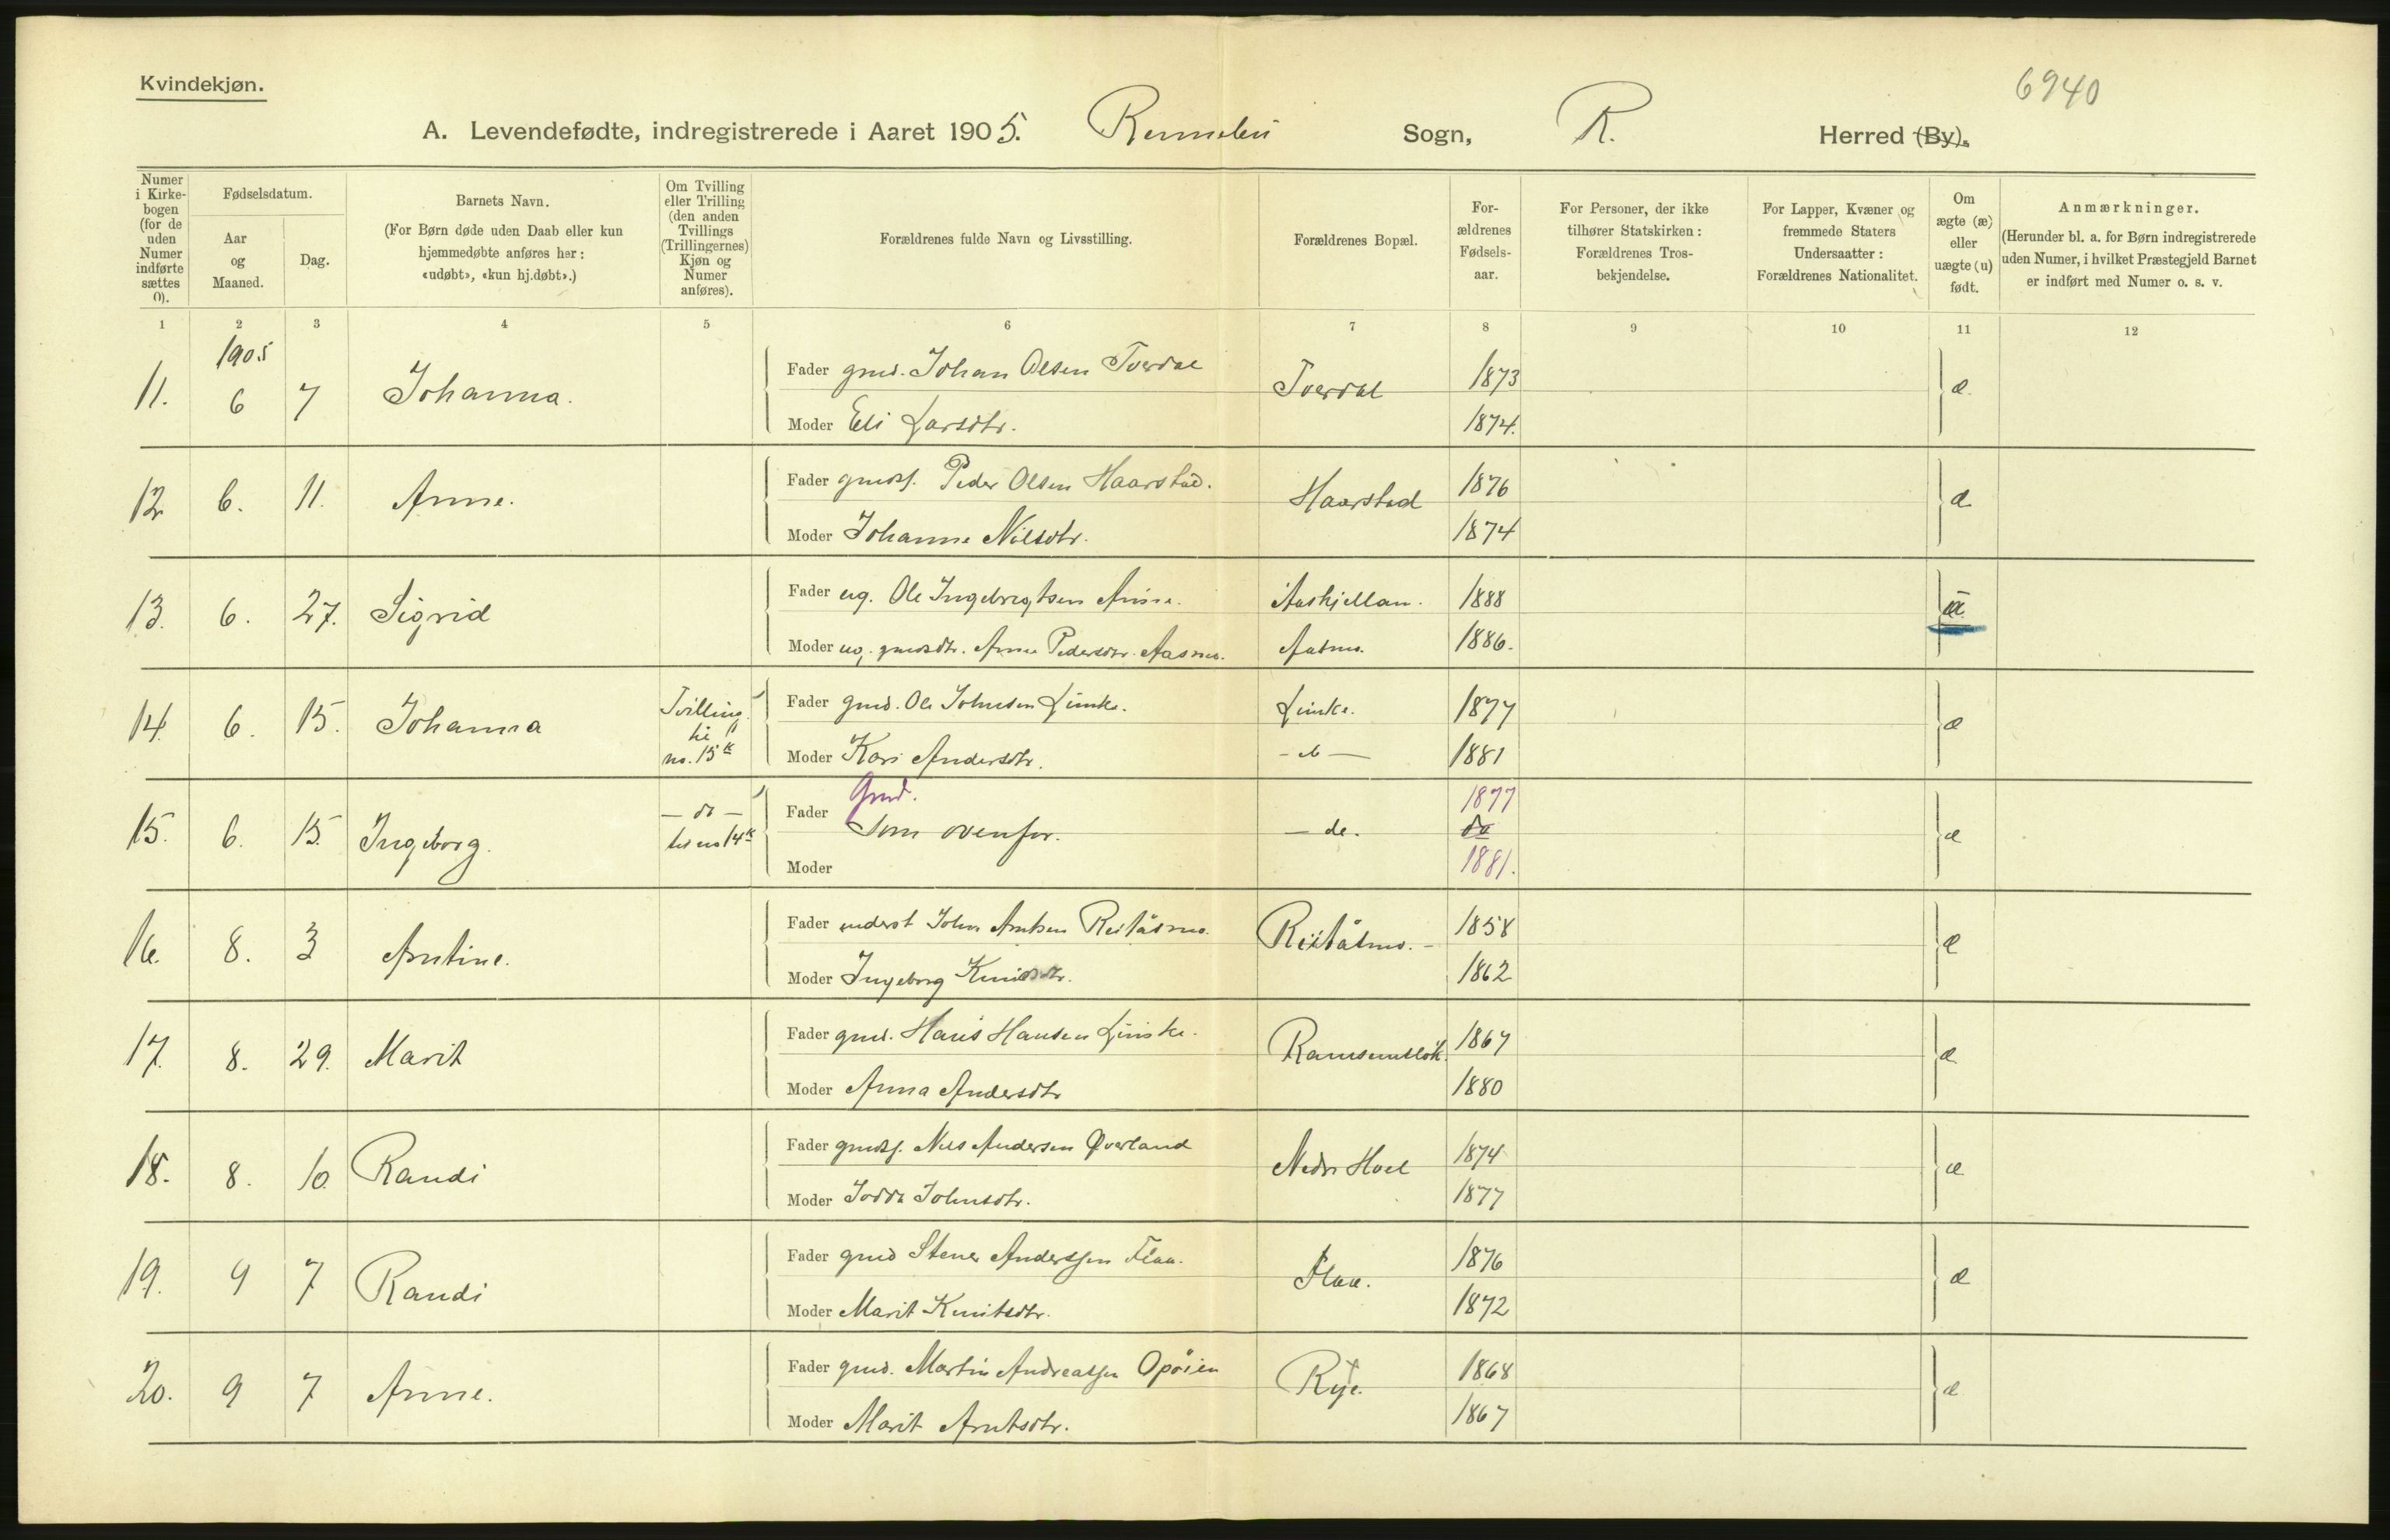 Kvindekjøn.
6940
A. Levendefødte, indregistrerede i Aaret 1905. Rennebu Sogn, R. Herred (By).
Numer i Kirkebogen (for de uden Numer indførte sættes 0).
Fødselsdatum.
Aar og Maaned.
Dag.
Barnets Navn.
(For Børn døde uden Daab eller kun hjemmedøbte anføres her: «udøbt», «kun hj.døbt».)
Om Tvilling eller Trilling (den anden Tvillings (Trillingernes) Kjøn og Numer anføres).
Forældrenes fulde Navn og Livsstilling.
Forældrenes Bopæl.
Forældrenes Fødselsaar.
For Personer, der ikke tilhører Statskirken: Forældrenes Trosbekjendelse.
For Lapper, Kvæner og fremmede Staters Undersaatter: Forældrenes Nationalitet.
Om ægte (æ) eller uægte (u) født.
Anmærkninger.
(Herunder bl. a. for Børn indregistrerede uden Numer, i hvilket Præstegjeld Barnet er indført med Numer o. s. v.
1 2 3 4 5 6 7 8 9 10 11 12
1905
11. 6 7 Johanna. Fader gmd. Johan Olsen Tverdal Tverdal 1873 æ.
Moder Eli Larsdtr. 1874.
12 6. 11. Anne. Fader gmdsf. Peder Olsen Haarstad. Haarstad 1876 æ
Moder Johanne Nilsdtr. 1874
13. 6. 27. Sigrid Fader ug. Ole Ingebrigtsen Aaskjellan. 1888
Moder ug. gmdsdtr. Anne Pedersdtr. Aasmo. Aasmo. 1886.
14. 6. 15. Johanna Tvilling til no. 15 k Fader gmd. Ole Johnsen 1877 æ
Moder Kari Andersdtr. - do - 1881
15. 6. 15. Ingeborg. - do - til no 14 k Fader Gmd. Som ovenfor. - do. 1877 do æ
Moder 1881.
16. 8. 3 Arntine. Fader John Arntsen Reitåsmo. Reitåsmo. - 1858 æ
Moder Ingeborg 1862
17. 8. 29. Marit Fader gmd. Hans Hansen 1867 æ
Moder Anna Andersdtr 1880
18. 8. 10. Randi Fader gmdsf. Nils Andersen Øverland Nedre Hoel 1874 æ
Moder Johnsdtr. 1877
19. 9 7 Randi Fader gmd Stener Anderssen Flaa. Flaa. 1876 æ
Moder Marit Knutsdtr. 1872
20. 9 7 Anne. Fader gmd. Martin Andreassen Opøien Rye. 1868 æ
Moder Marit Arntsdtr. 1867